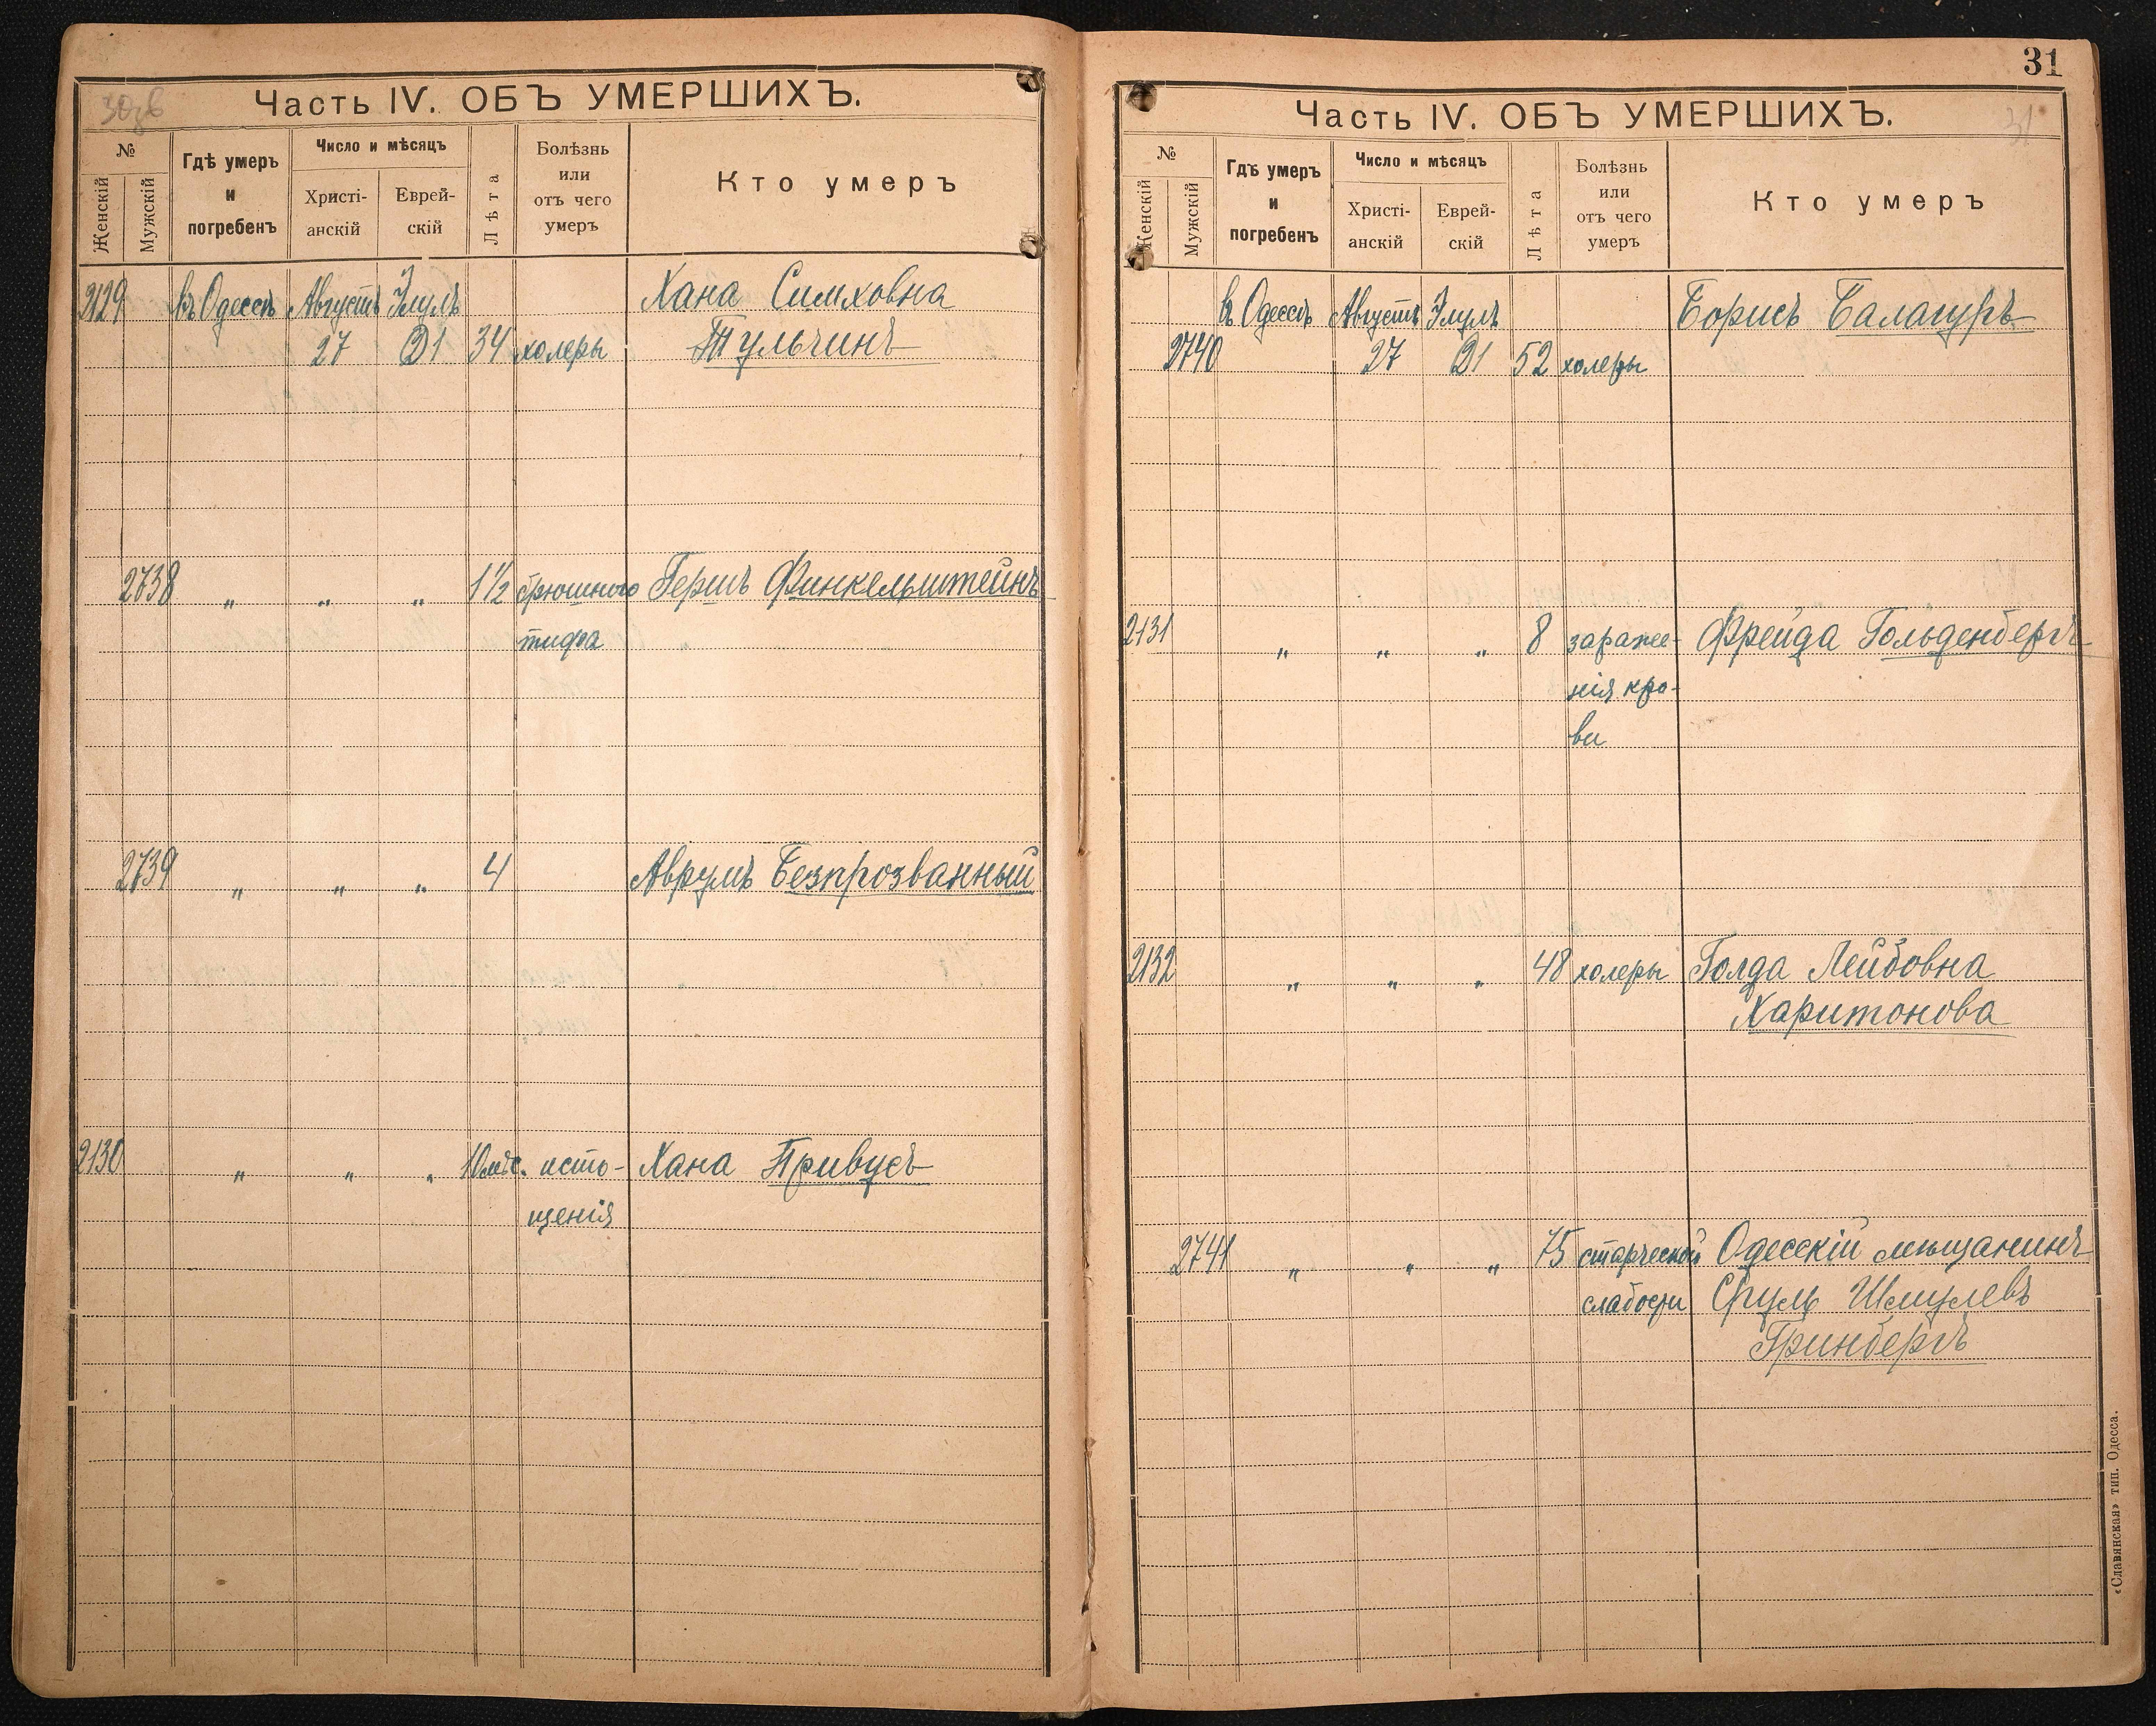 30зв
Часть IV. ОБЪ УМЕРШИХЪ.
№
Женскій
Мужскій
Гдѣ умеръ
и
погребенъ
Число и мѣсяцъ
Христі-
анскій
Еврей-
скій
Лѣта
Болѣзнь
или
отъ чего
умеръ
Кто умеръ
2129 въ Одессѣ Августъ Элулъ Хана Симховна
27 21 34 холеры Тульчинъ
2738 „ „ „ 1½ брюшного Гершъ Финкельштейнъ
тифа
2739 „ „ „ 4 Аврумъ Безпрозванный
2130 „ „ „ 10 мѣс. исто- Хана Привусъ
щенія
31
Часть IV. ОБЪ УМЕРШИХЪ.
31
№
Женскій
Мужскій
Гдѣ умеръ
и
погребенъ
Число и мѣсяцъ
Христі-
анскій
Еврей-
скій
Лѣта
Болѣзнь
или
отъ чего
умеръ
Кто умеръ
въ Одессѣ Августъ Элулъ Борисъ Балагуръ
2740 27 21 52 холеры
2131 „ „ „ 8 зараже- Фрейда Гольденбергъ
нія кро-
ви
2132 „ „ „ 48 холеры Голда Лейбовна
Харитонова
2741 „ „ „ 75 старческой Одесскій мѣщанинъ
слабости Сруль Шмулевъ
Гринбергъ
«Славянская» тип. Одесса.